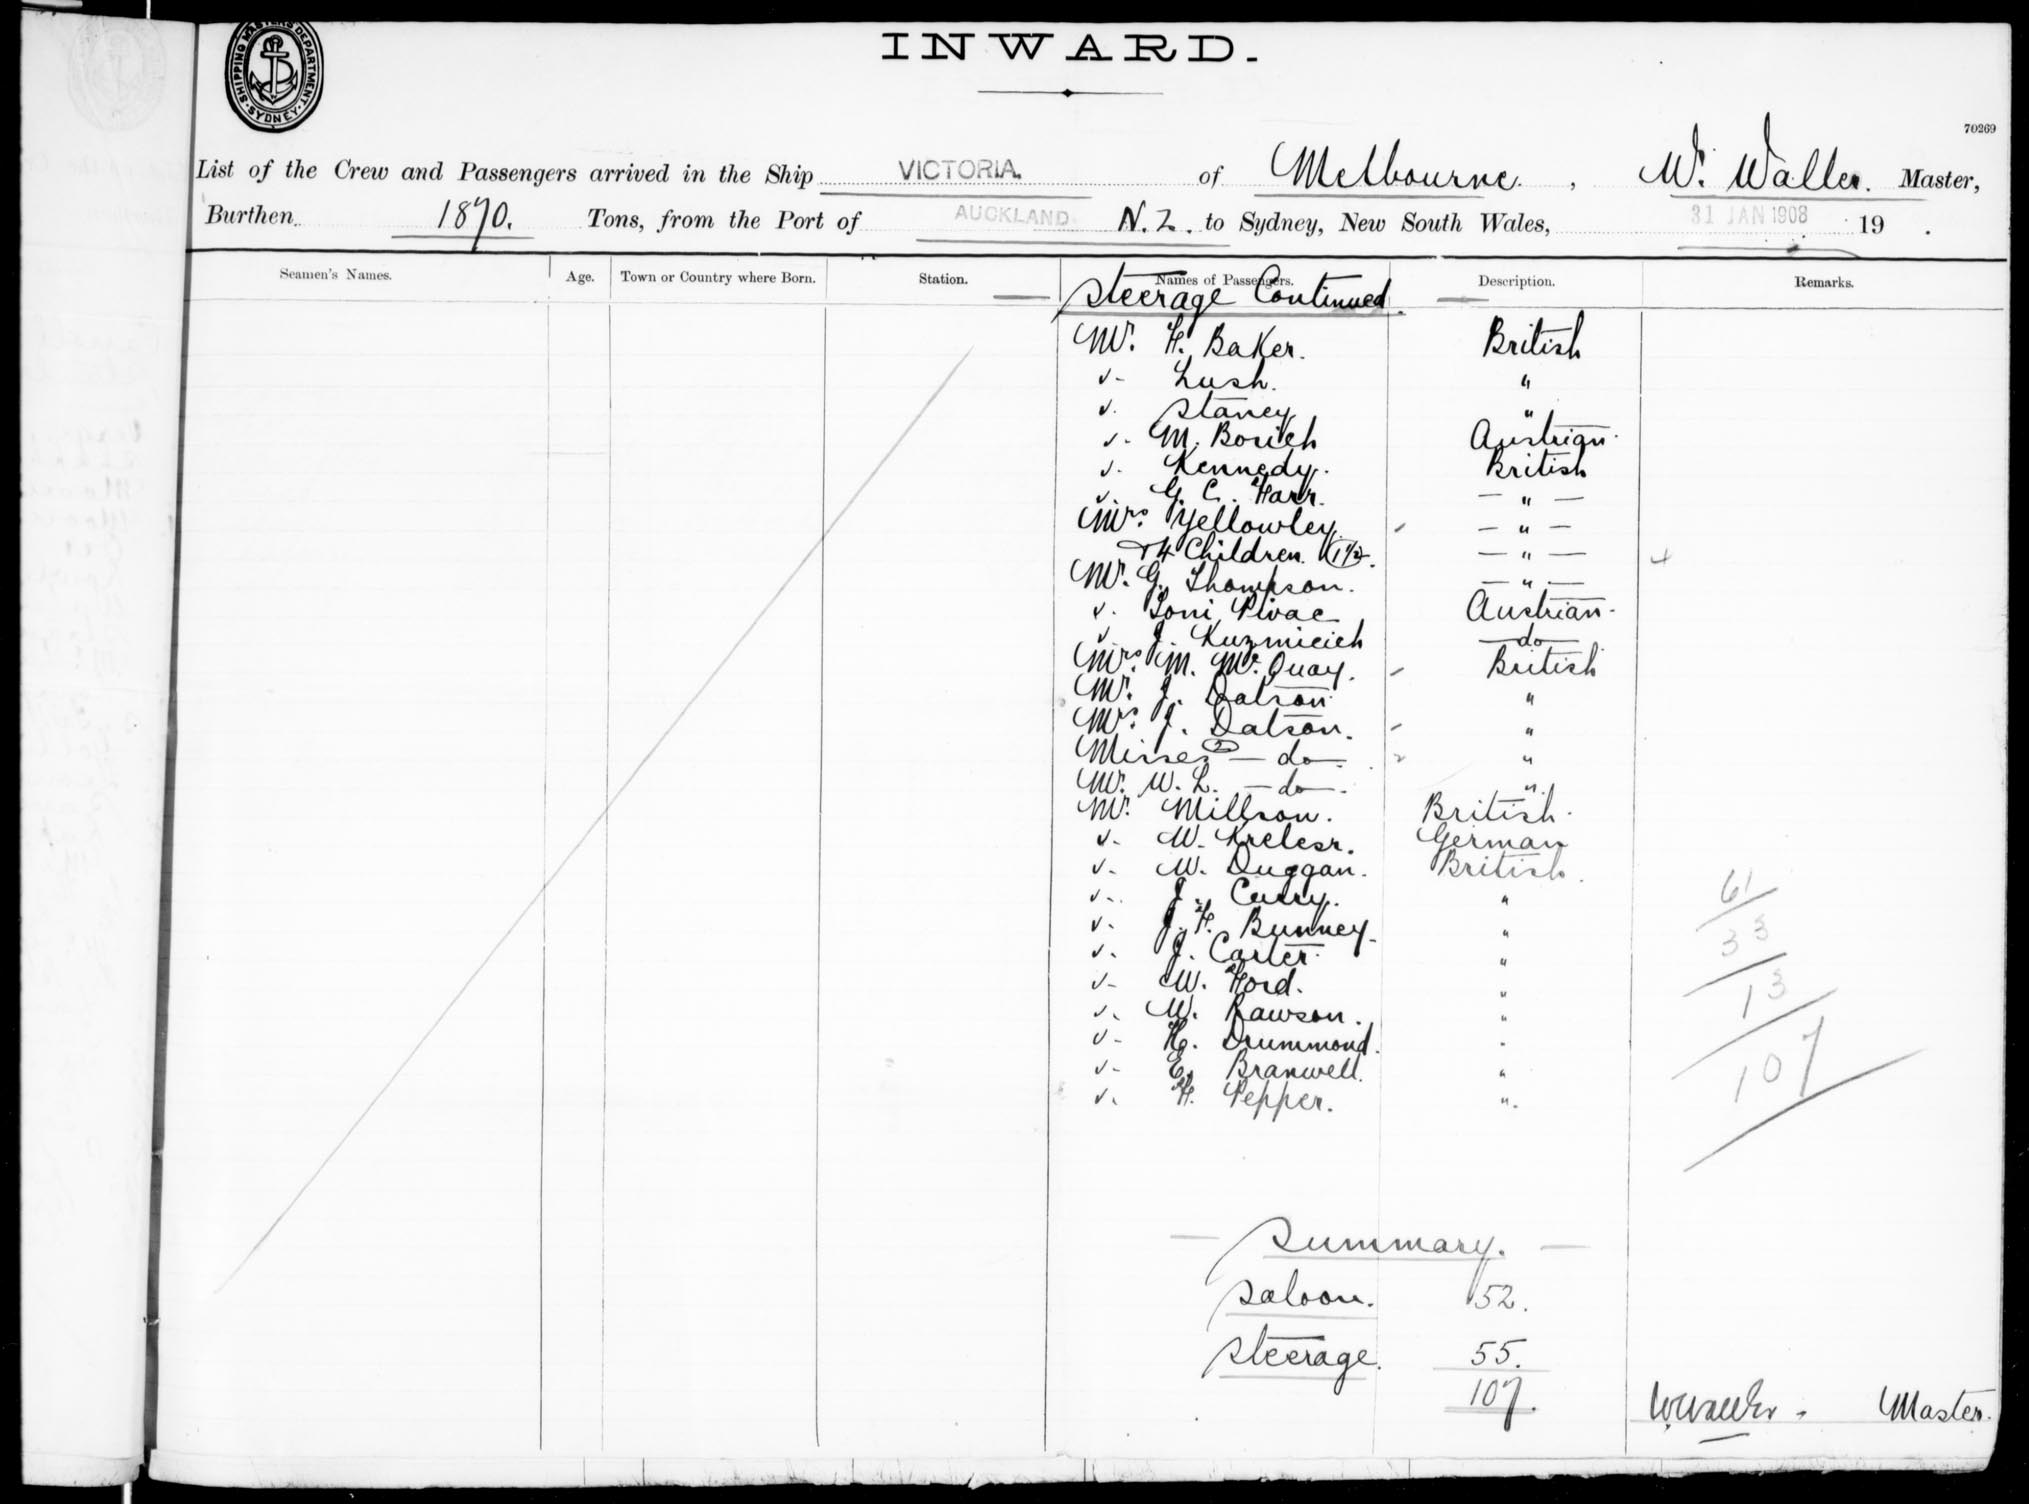 SHIPPING MASTERS DEPARTMENT · SYDNEY ·
INWARD.
70269
List of the Crew and Passengers arrived in the Ship VICTORIA. of Melbourne, W. Waller. Master,
Burthen 1870. Tons, from the Port of AUCKLAND N.Z. to Sydney, New South Wales, 31 JAN 1908 19 .
Seamen's Names. Age. Town or Country where Born. Station. Names of Passengers. Description. Remarks.
Steerage Continued.
Mr. H. Baker. British
" Lush. "
" Stancy "
" M. Borich Austrian.
" Kennedy. British
" G. C. Harr. — " —
Mrs Yellowley. — " —
+ 4 Children. (1½). — " — 4
Mr. G. Thompson. — " —
" Toni Pivac Austrian.
" J. Kuzmicich do
Mrs M. McQuay. British
Mr. J. Datson "
Mrs J. Datson. "
Misses (2) — do — "
Mr. W. L. — do — "
Mr. Millson. British.
" W. German
" W. Duggan. British.
" J. Curry. "
" J. H. Bunney "
" J. Carter "
" W. Hord. "
" W. Rawson. "
" H. Drummond. "
" E. Branwell. "
" H. Pepper. "
61
33
13
107
— Summary. —
Saloon. 52.
Steerage. 55.
107.
W. Waller. Master.